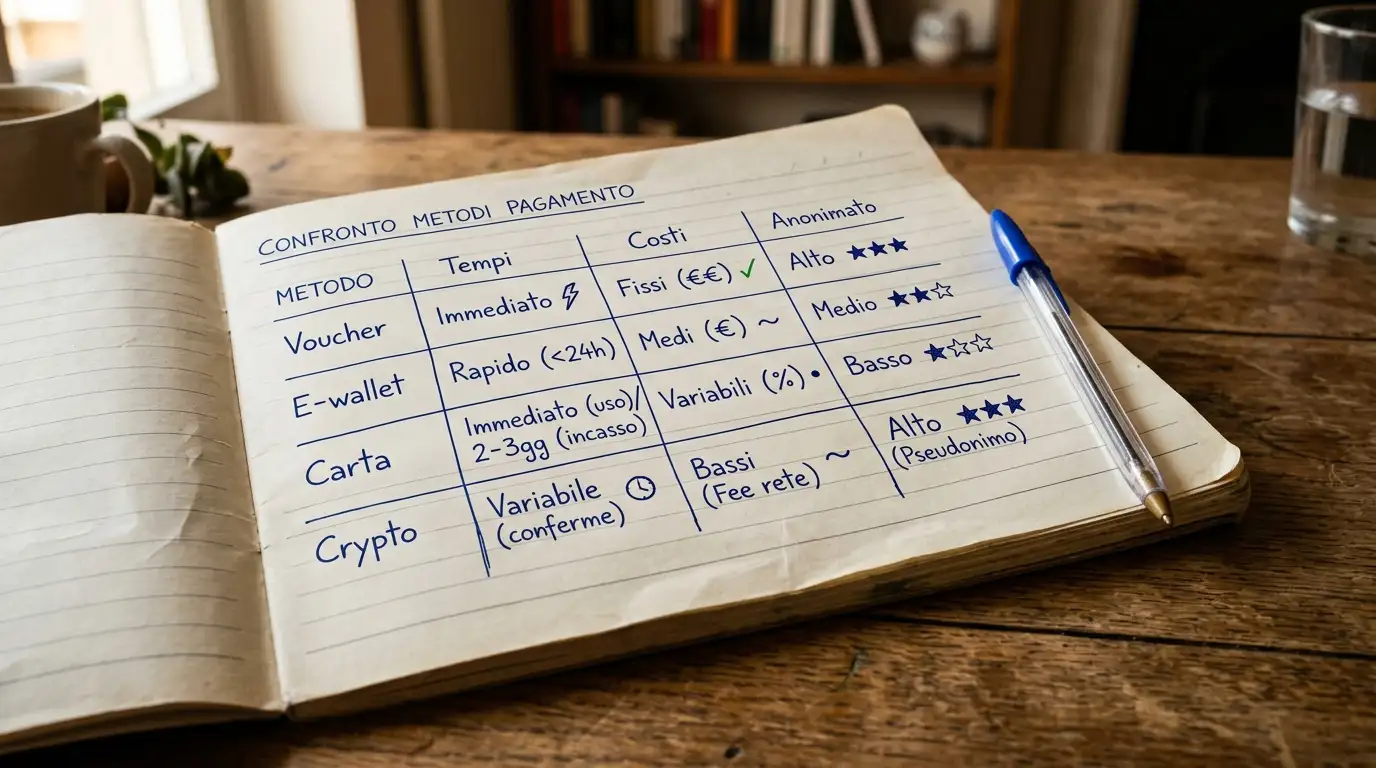 CONFRONTO METODI PAGAMENTO
METODO Tempi Costi Anonimato
Voucher Immediato ⚡ Fissi (€€) ✓ Alto ★★★
E-wallet Rapido (<24h) Medi (€) ~ Medio ★★☆
Carta Immediato (uso)/ Variabili (%) • Basso ★☆☆
2-3gg (incasso)
Crypto Variabile Bassi ~ Alto ★★★
(conferme) (Fee rete) (Pseudonimo)